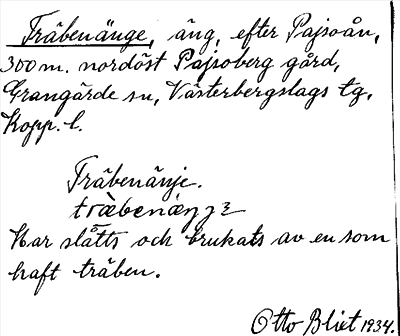 Träbenänge, äng, efter Pajsoån,
300 m. nordöst Pajsoberg gård,
Grangärde sn, Västerbergslags tg,
Kopp. l.
Träbenänje.
Har slåtts och brukats av en som
haft träben.
Otto Blixt 1934.